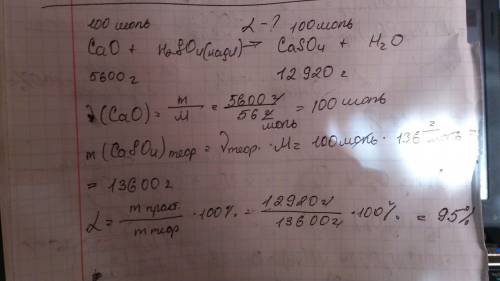 100 моль α-? 100 моль
CaO + H2SO4(надл) → CaSO4 + H2O
5600 г 12920 г
ν(CaO) = m/M = 5600 г / 56 г/моль = 100 моль
m(CaSO4)теор = νтеор. · M = 100 моль · 136 г/моль =
= 13600 г
α = m практ. / m теор · 100% = 12920 г / 13600 г · 100% = 95%